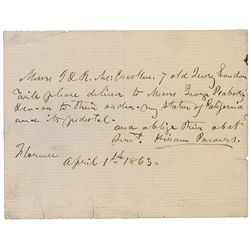 Messrs J & R. McCracken, 7 old Jewry London
will please deliver to Messrs George Peabody
or to their order - my Statue of California
and its pedestal -
and oblige their obdt
Servt. Hiram Powers.
Florence
April 1st 1863 -